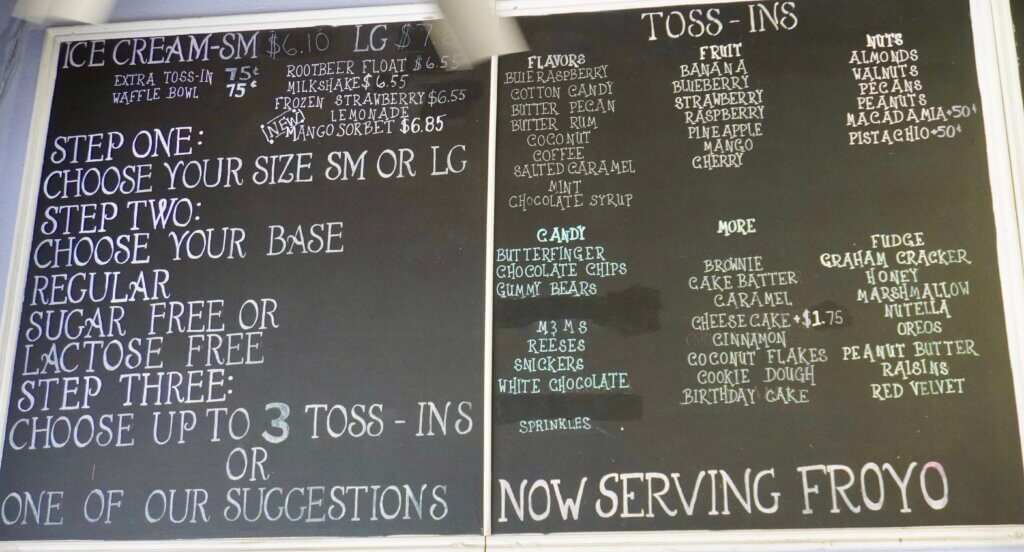 ICE CREAM-SM $6.10 LG $7.6
EXTRA TOSS-IN 75¢
WAFFLE BOWL 75¢
ROOTBEER FLOAT $6.55
MILKSHAKE $6.55
FROZEN STRAWBERRY $6.55
LEMONADE
NEW
MANGO SORBET $6.85
STEP ONE:
CHOOSE YOUR SIZE SM OR LG
STEP TWO:
CHOOSE YOUR BASE
REGULAR
SUGAR FREE OR
LACTOSE FREE
STEP THREE:
CHOOSE UP TO 3 TOSS-INS
OR
ONE OF OUR SUGGESTIONS
TOSS-INS
FLAVORS
BLUE RASPBERRY
COTTON CANDY
BUTTER PECAN
BUTTER RUM
COCONUT
COFFEE
SALTED CARAMEL
MINT
CHOCOLATE SYRUP
FRUIT
BANANA
BLUEBERRY
STRAWBERRY
RASPBERRY
PINEAPPLE
MANGO
CHERRY
NUTS
ALMONDS
WALNUTS
PECANS
PEANUTS
MACADAMIA+50¢
PISTACHIO+50¢
CANDY
BUTTERFINGER
CHOCOLATE CHIPS
GUMMY BEARS
M&MS
REESES
SNICKERS
WHITE CHOCOLATE
SPRINKLES
MORE
BROWNIE
CAKE BATTER
CARAMEL
CHEESE CAKE+$1.75
CINNAMON
COCONUT FLAKES
COOKIE DOUGH
BIRTHDAY CAKE
FUDGE
GRAHAM CRACKER
HONEY
MARSHMALLOW
NUTELLA
OREOS
PEANUT BUTTER
RAISINS
RED VELVET
NOW SERVING FROYO